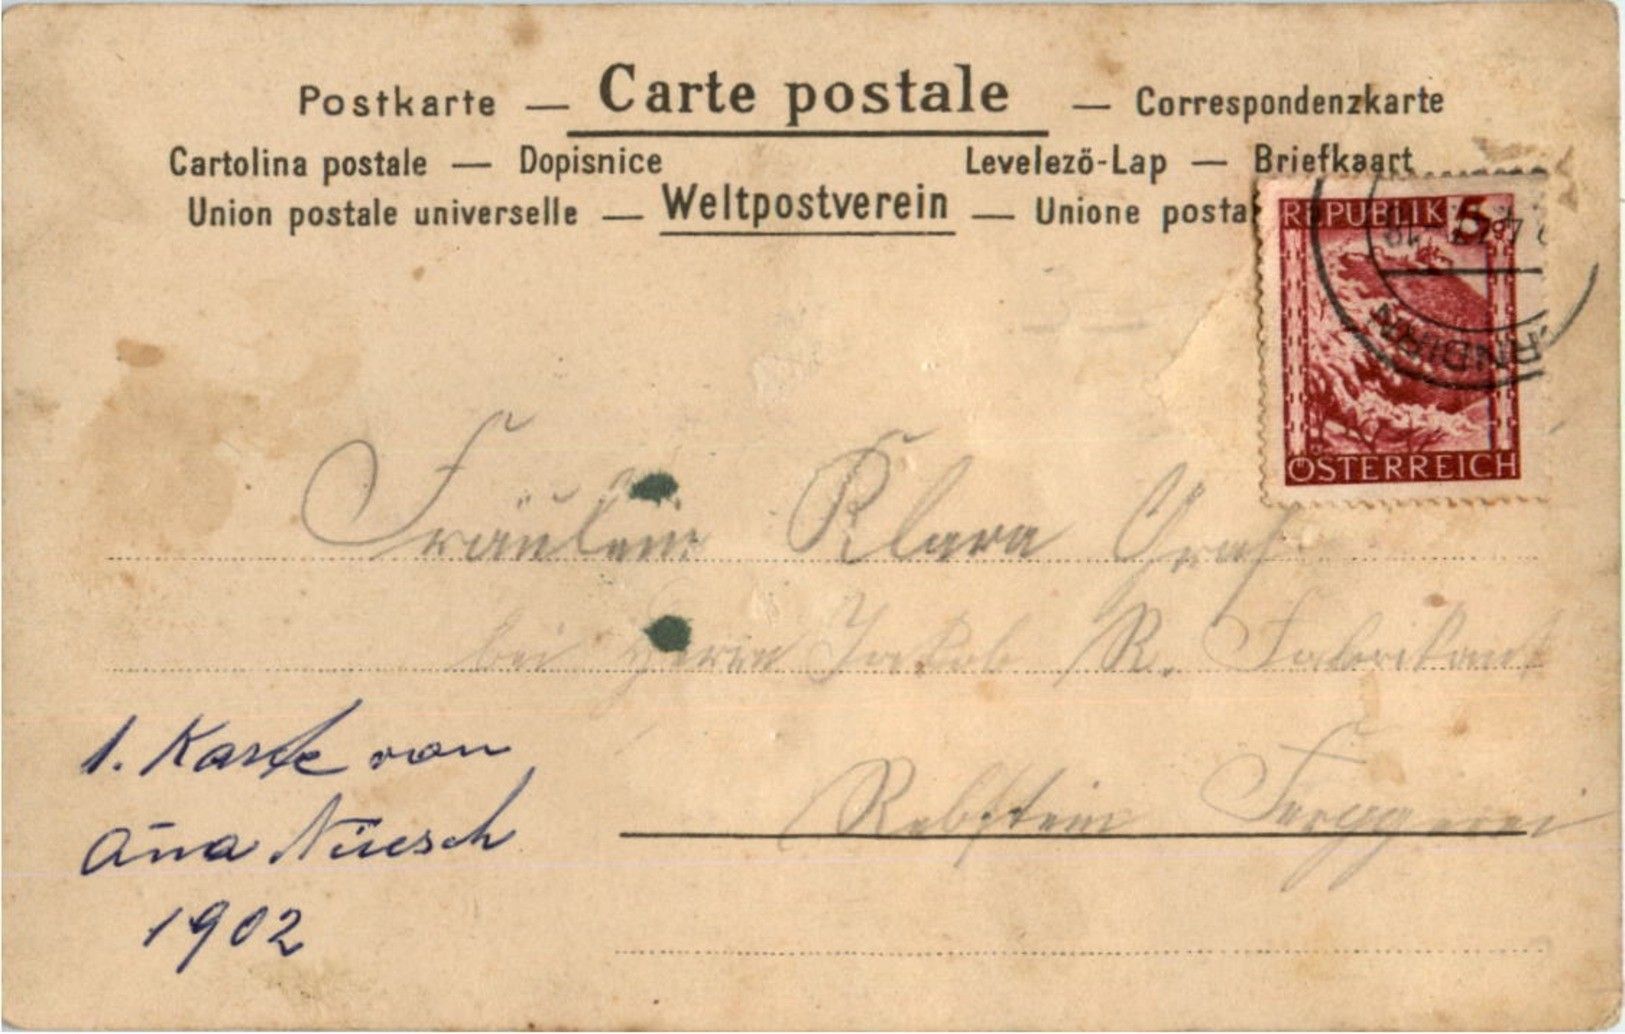 Postkarte — Carte postale — Correspondenzkarte
Cartolina postale — Dopisnice Levelező-Lap — Briefkaart
Union postale universelle — Weltpostverein — Unione posta
REPUBLIK 5
ÖSTERREICH
Fräulein Klara Graf
bei Herrn Jakob R. Fabrikant
Rebstein Ferggerei
1. Karte von
Ana Nüesch
1902